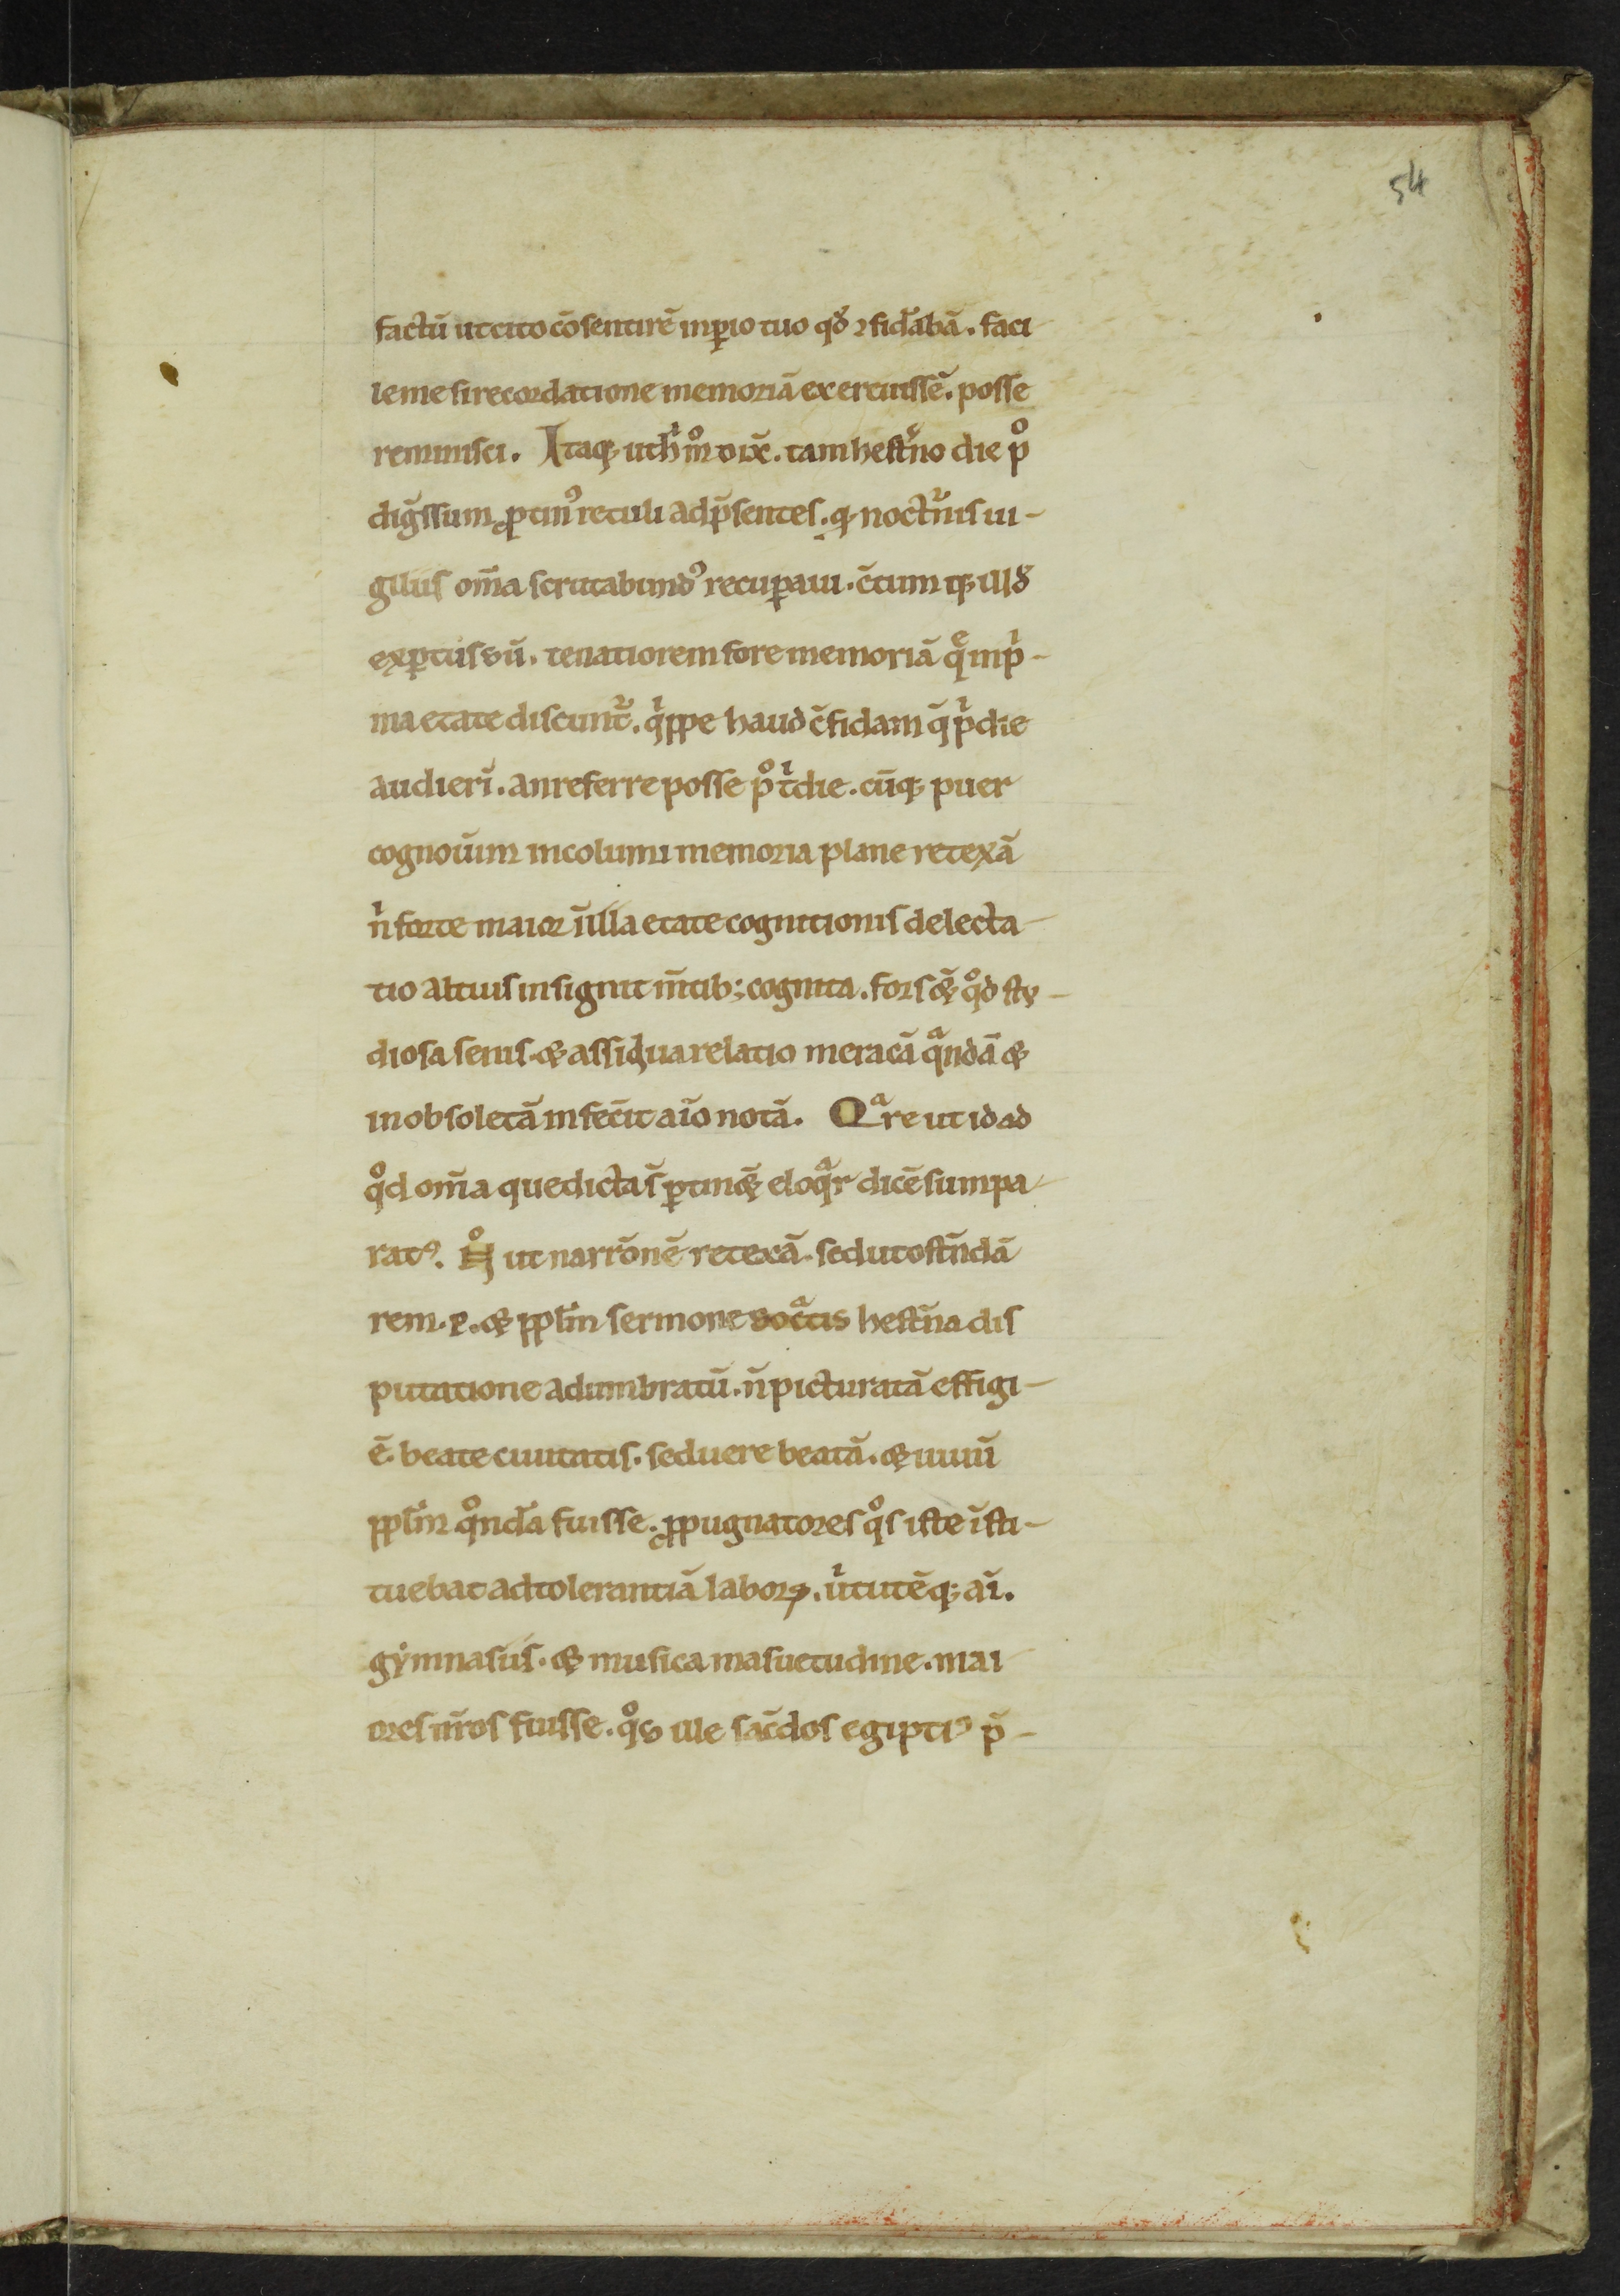 54
factū ut cito cōsentirē inꝑio tuo qd̛ ɔfidābā. faci
le me si recordatione memoriā exercuissē. posse
reminisci. Itaqꝫ ut hͥ mͦ dix̄. tam hest̛no die pͦ
dig̛ssum ꝓtinꝰ retuli ad p̄sentes. qꝫ noct̛nis ui-
giliis om̄a scrutabundꝰ recuꝑaui. c̄tum qꝫ illd̛
exꝑtus sū. tenatiorem fore memoriā qͤ in pͥ-
ma etate discunt̛. qͥppe haud c̄fidam q̄ pͥdie
audierī. an referre posse pͦtͥdie. cūqꝫ puer
cognoūim incolumi memoria plane retexā
nͥ forte maior illa etate cognitionis delecta-
tio altius insignit m̄tib; cognita. fors & qͦd sty-
diosa senis & assidua relatio meracā qͣndā &
inobsoletā infec̄it aīo notā. Qͣre ut id ad
qͦd om̄a que dicta s̄ ꝑtin& eloqͣr dicē sum pa-
ratꝰ. Nͦ ut narrōnē retexā. sed ut ost̄ndā
rem. p. & pplm̄ sermone socͣtis hest̄na dis
putatione adumbratū. n̄ picturatā effigi-
ē. beate ciuitatis. sed uere beatā. & uiuū
pplm̄ qͦndā fuisse. ꝓpugnatores qͦs iste īsti-
tuebat ad tolerantiā laborꝝ. uͥtutēqꝫ aī.
gẏmnasiis. & musica masuetudine. mai
ores nr̄os fuisse. qͦs ille sac̄dos egiptiꝰ p̄-